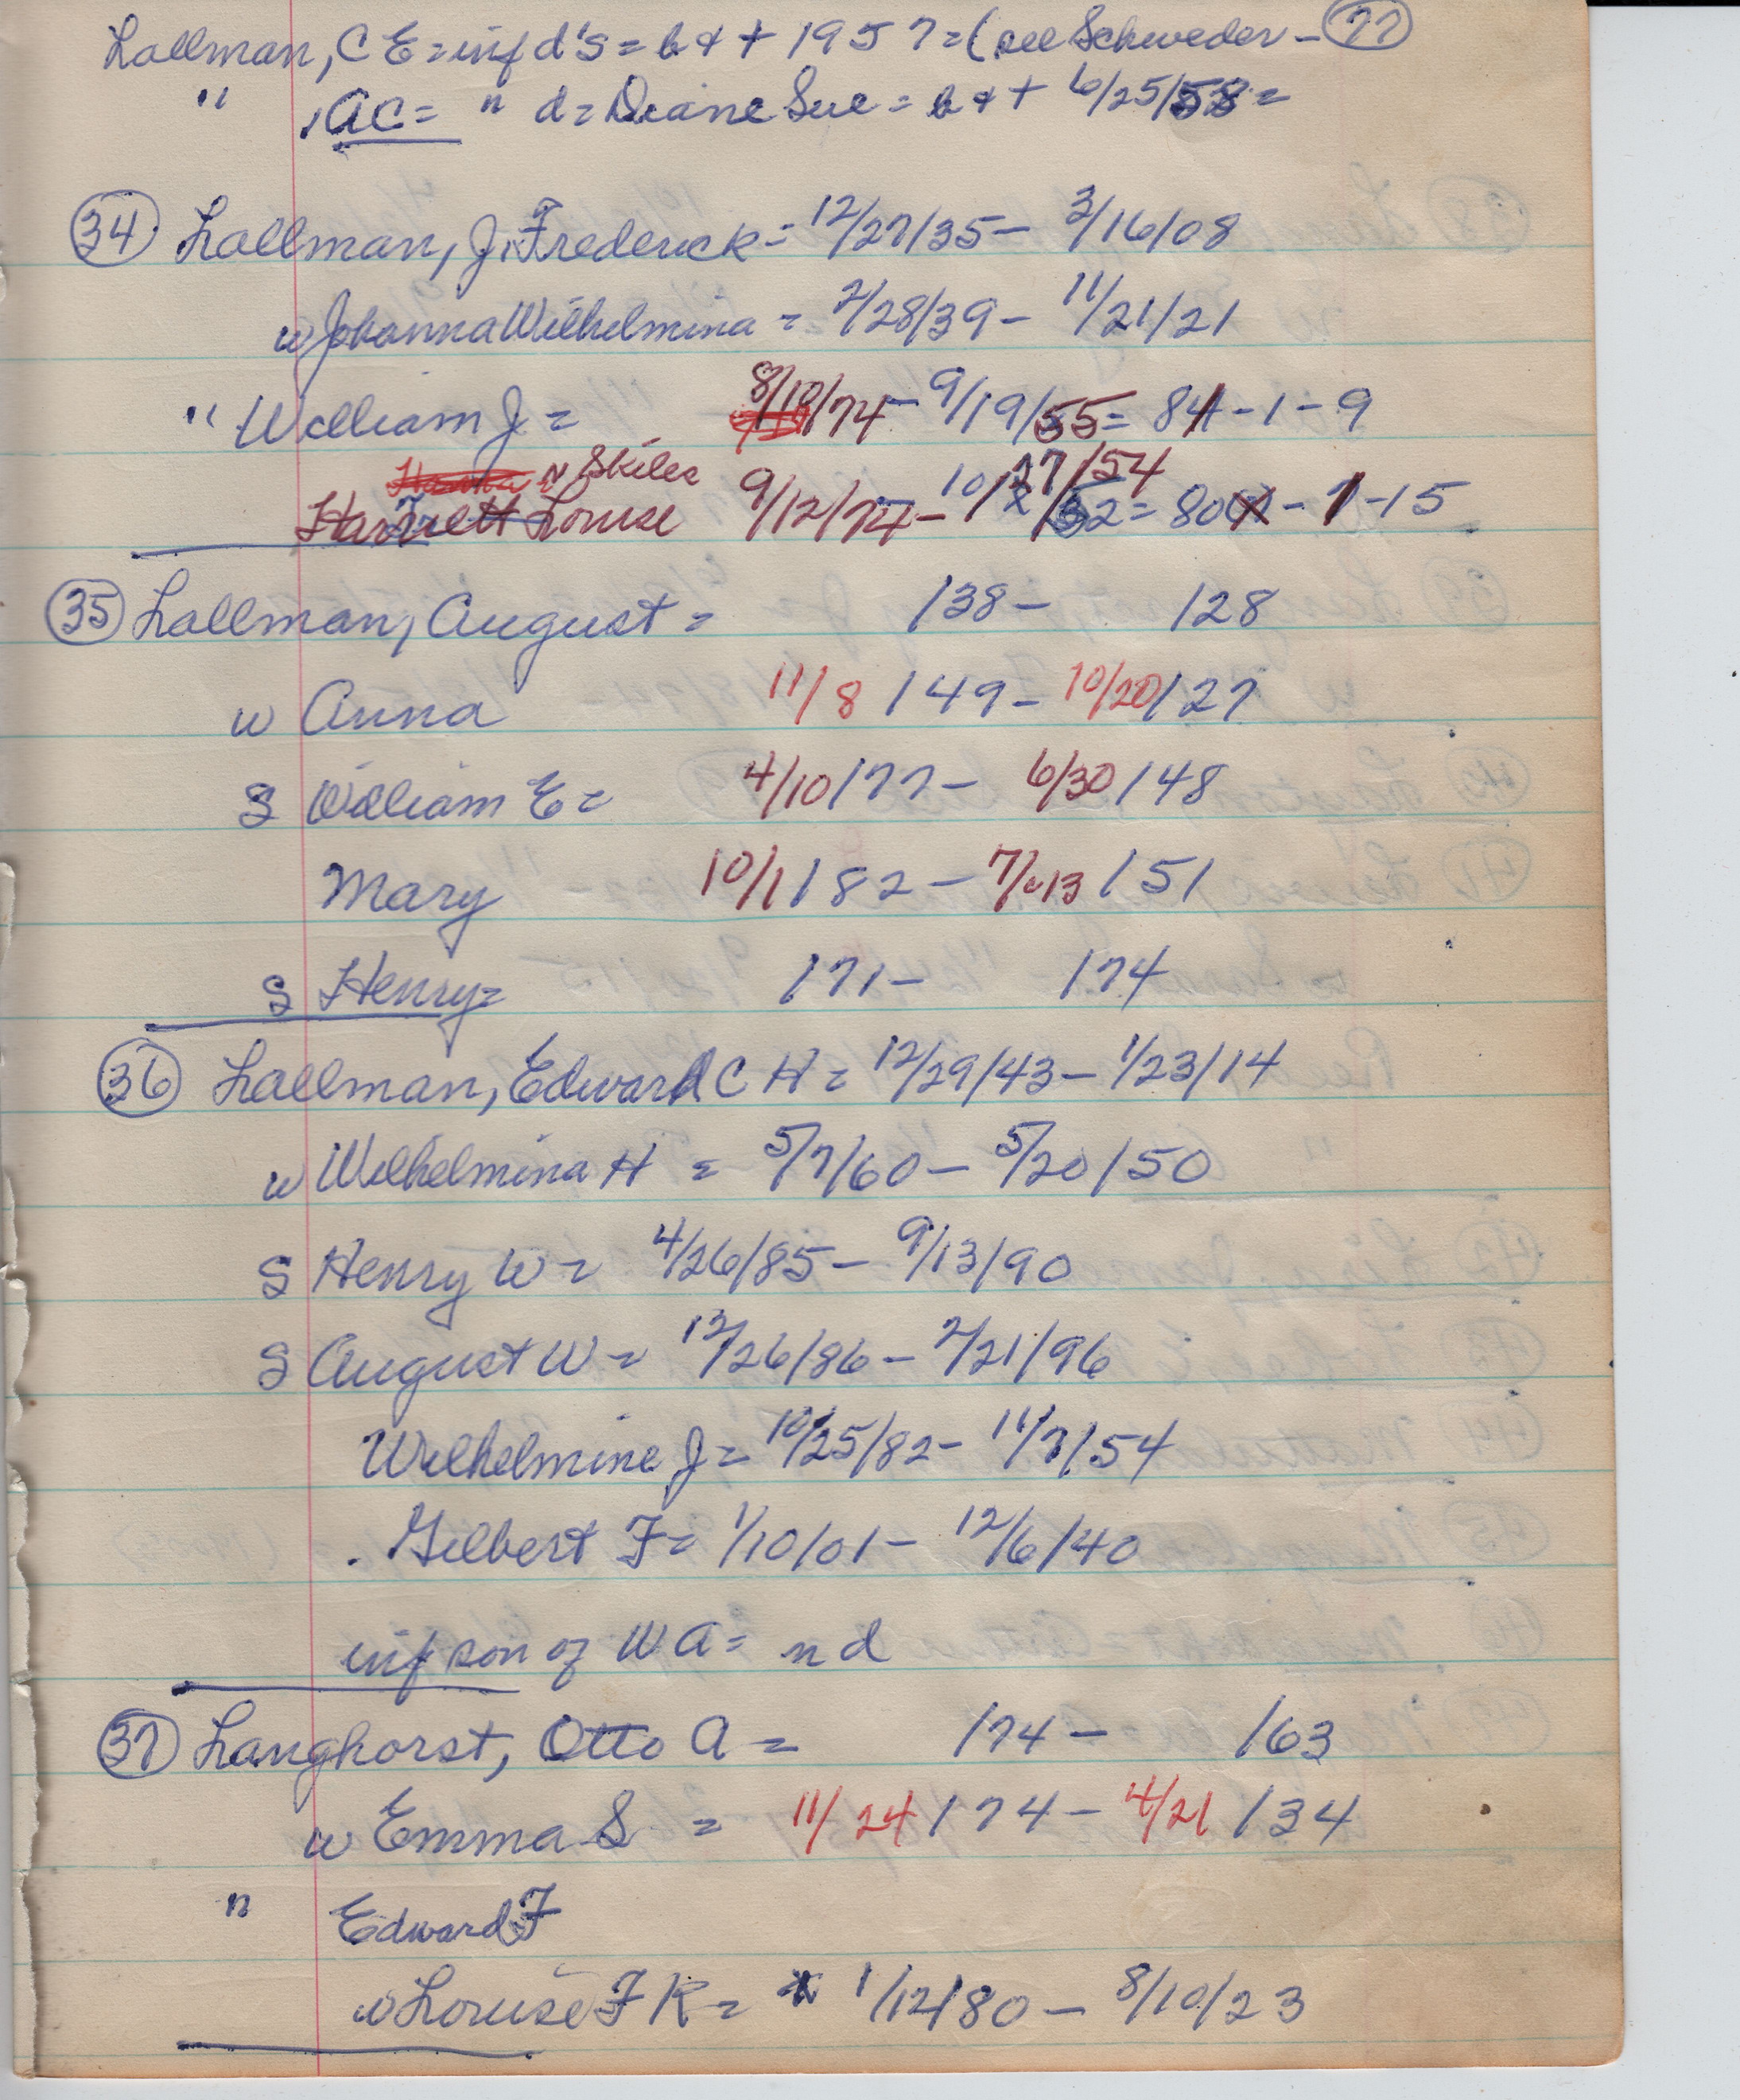 Lallman, C E = inf d's = b & + 1957 = (see Schweder - 77
" , AC = " d = Diane Sue = b & + 6/25/58 =
34 Lallman, J. Frederick = 12/27/35 - 3/16/08
w Johanna Wilhelmina = 2/28/39 - 11/21/21
" William J = 8/10/74 - 9/19/55 = 81 - 1 - 9
n Skiles
Harriett Louise 9/12/74 - 10/27/54 = 80 - 1 - 15
35 Lallman, August = /38 - /28
w Anna 11/8/49 - 10/20/27
S William E = 4/10/77 - 6/30/48
Mary 10/1/82 - 7/13/51
S Henry = /71 - /74
36 Lallman, Edward C H = 12/29/43 - 1/23/14
w Wilhelmina H = 5/7/60 - 5/20/50
S Henry W = 4/26/85 - 9/13/90
S August W = 12/26/86 - 2/21/96
Wilhelmine J = 10/25/82 - 11/7/54
. Gilbert F = 1/10/01 - 12/6/40
inf son of W A = n d
37 Langhorst, Otto A = /74 - /63
w Emma S = 11/24/74 - 4/21/34
" Edward F
w Louise F K = 1/12/80 - 8/10/23